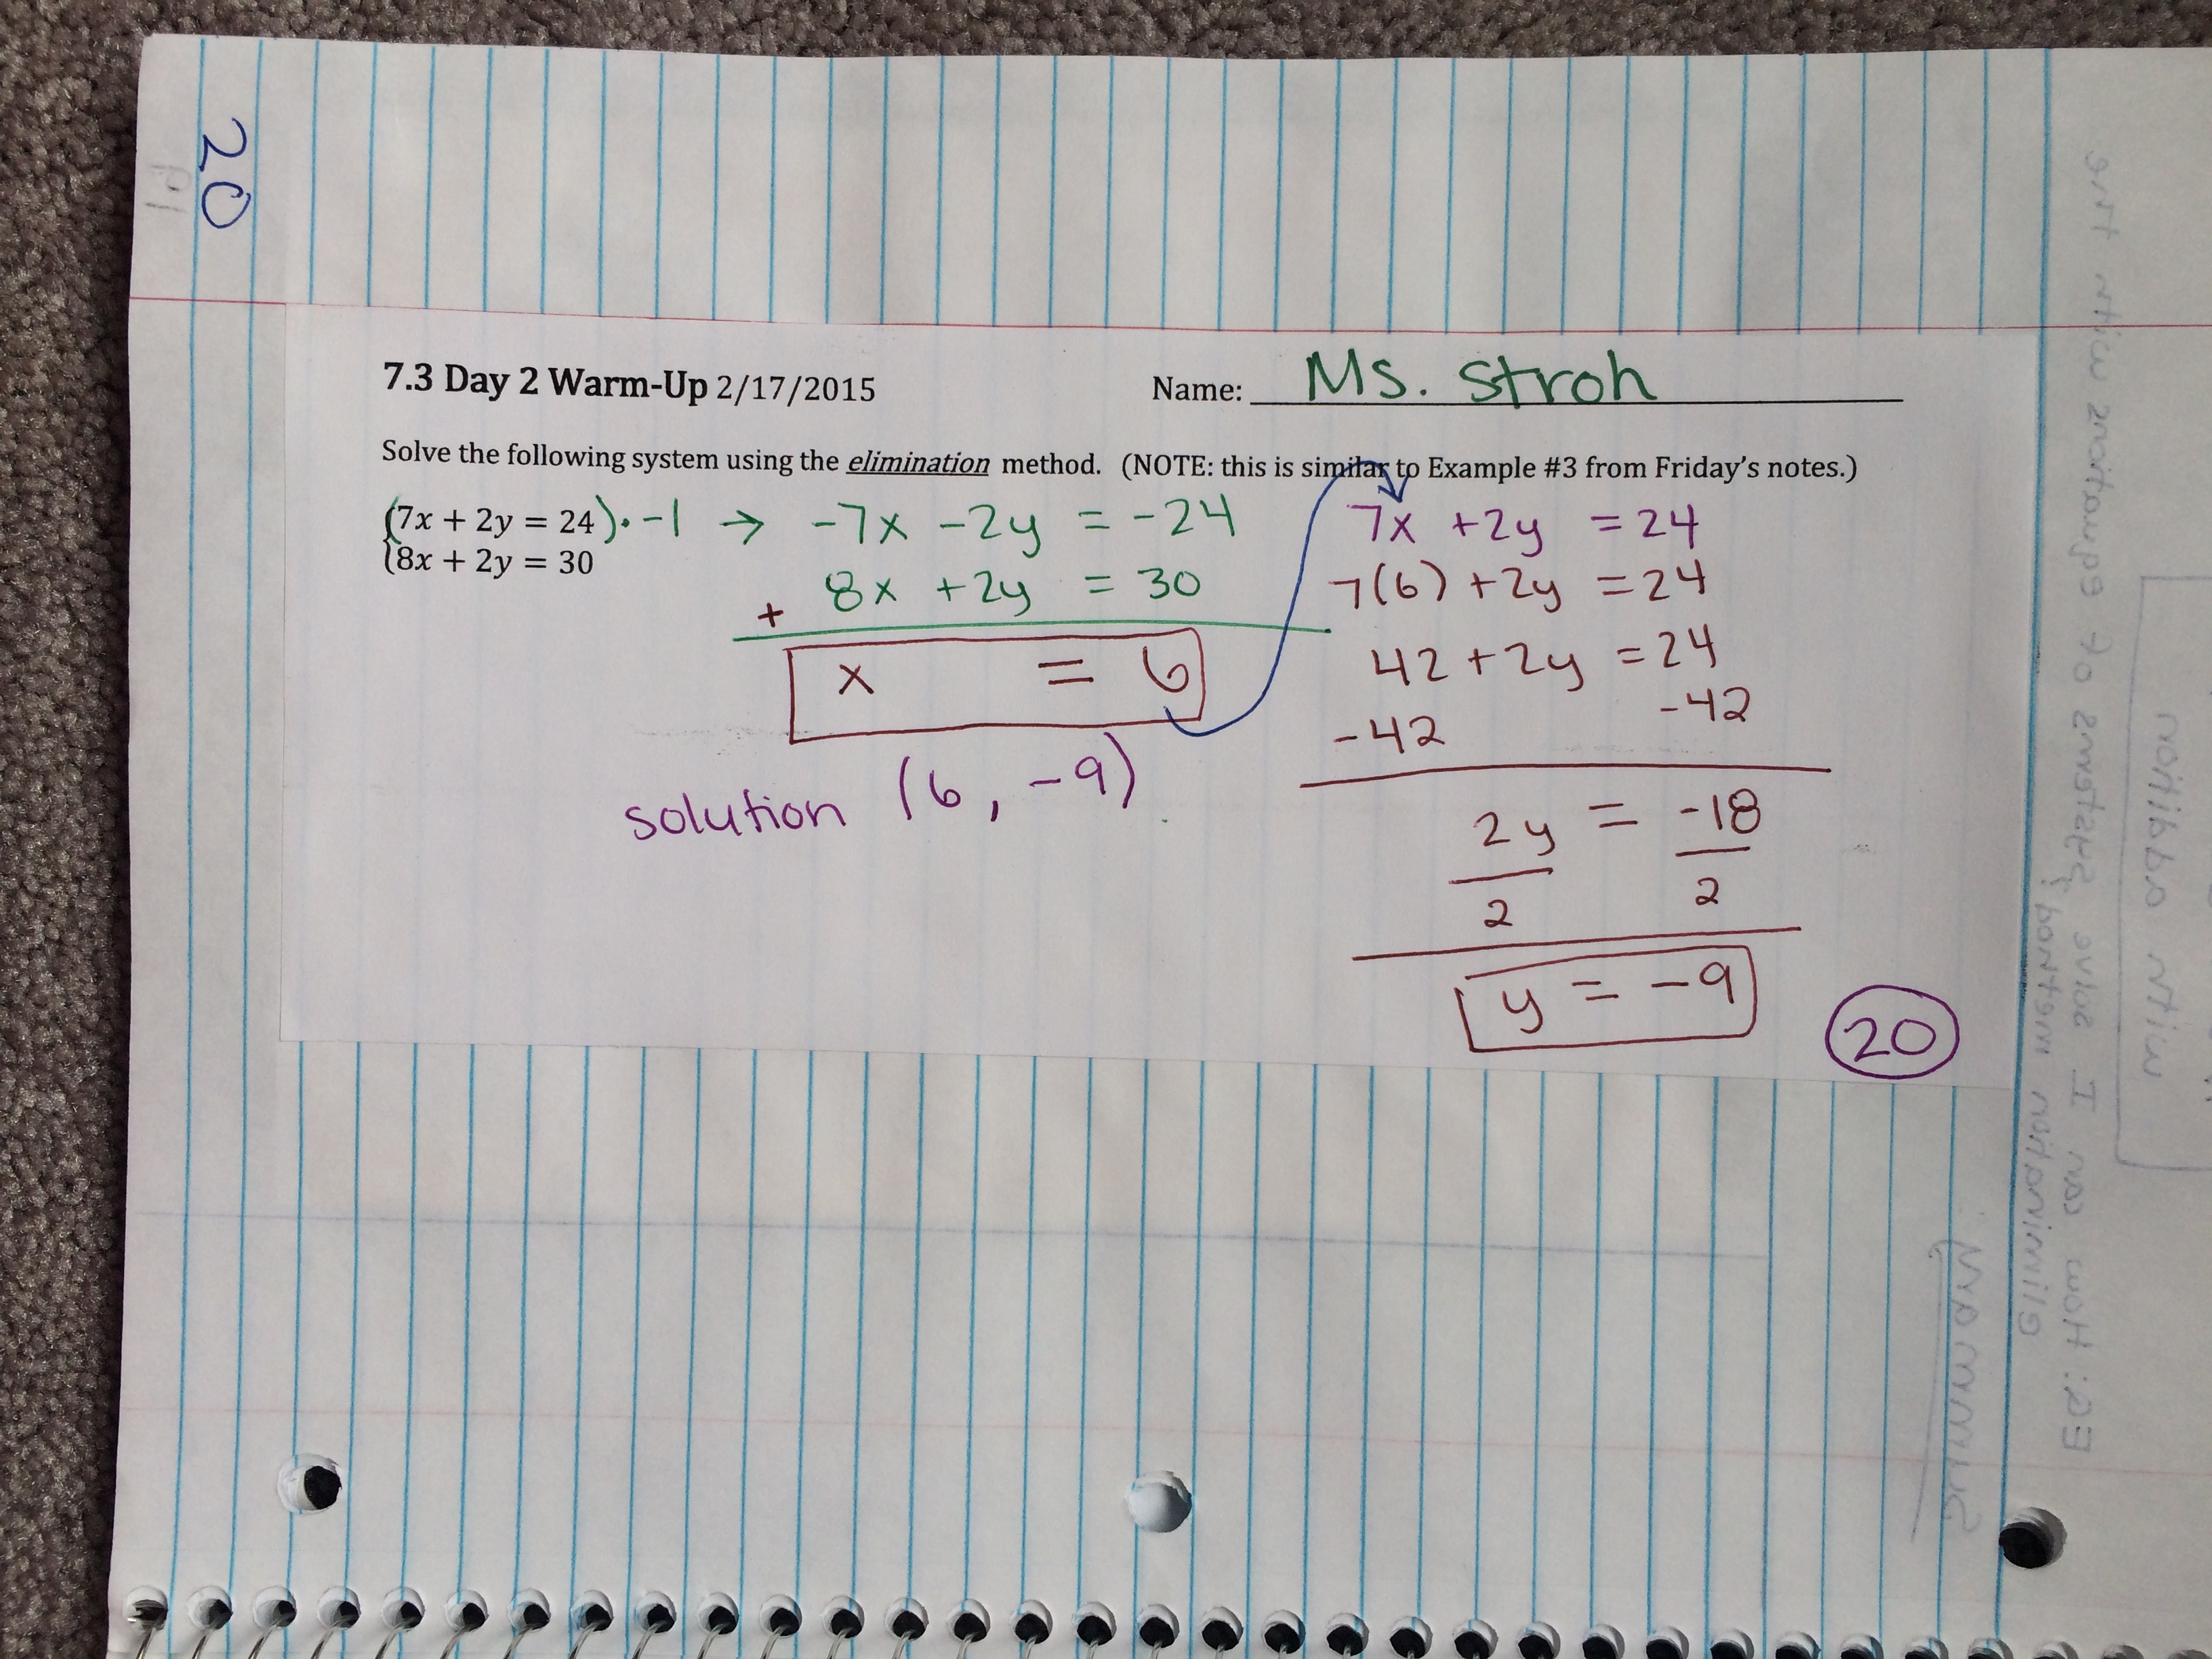 20
19
7.3 Day 2 Warm-Up 2/17/2015 Name: Ms. Stroh
Solve the following system using the elimination method. (NOTE: this is similar to Example #3 from Friday's notes.)
(7x + 2y = 24)·-1 → -7x -2y = -24
8x + 2y = 30
+ 8x +2y = 30
x = 6
solution (6, -9)
7x +2y = 24
7(6) +2y = 24
42 +2y = 24
-42 -42
2y = -18
2 2
y = -9
20
EQ: How can I solve systems of equations with the
elimination method?
Summary
with addition